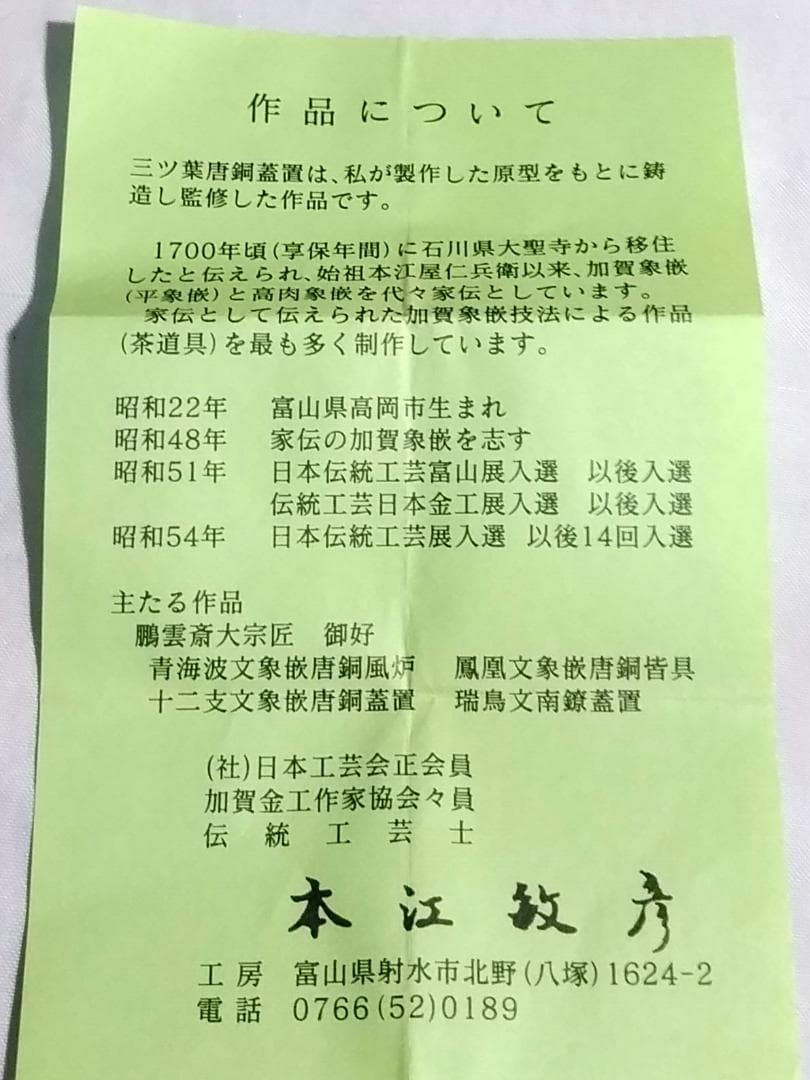 作品について
三ツ葉唐銅蓋置は、私が製作した原型をもとに鋳
造し監修した作品です。
1700年頃(享保年間)に石川県大聖寺から移住
したと伝えられ、始祖本江屋仁兵衛以来、加賀象嵌
(平象嵌)と高肉象嵌を代々家伝としています。
家伝として伝えられた加賀象嵌技法による作品
(茶道具)を最も多く制作しています。
昭和22年 富山県高岡市生まれ
昭和48年 家伝の加賀象嵌を志す
昭和51年 日本伝統工芸富山展入選 以後入選
伝統工芸日本金工展入選 以後入選
昭和54年 日本伝統工芸展入選 以後14回入選
主たる作品
鵬雲斎大宗匠 御好
青海波文象嵌唐銅風炉 鳳凰文象嵌唐銅皆具
十二支文象嵌唐銅蓋置 瑞鳥文南鐐蓋置
(社)日本工芸会正会員
加賀金工作家協会々員
伝統工芸士
本江敏彦
工房 富山県射水市北野(八塚)1624-2
電話 0766(52)0189